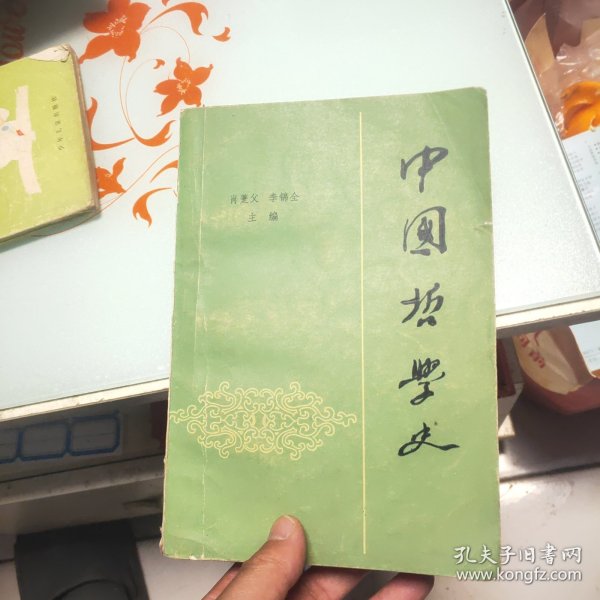 中國哲學史
肖萐父 李锦全
主编
孔夫子旧书网
www.kongfz.com